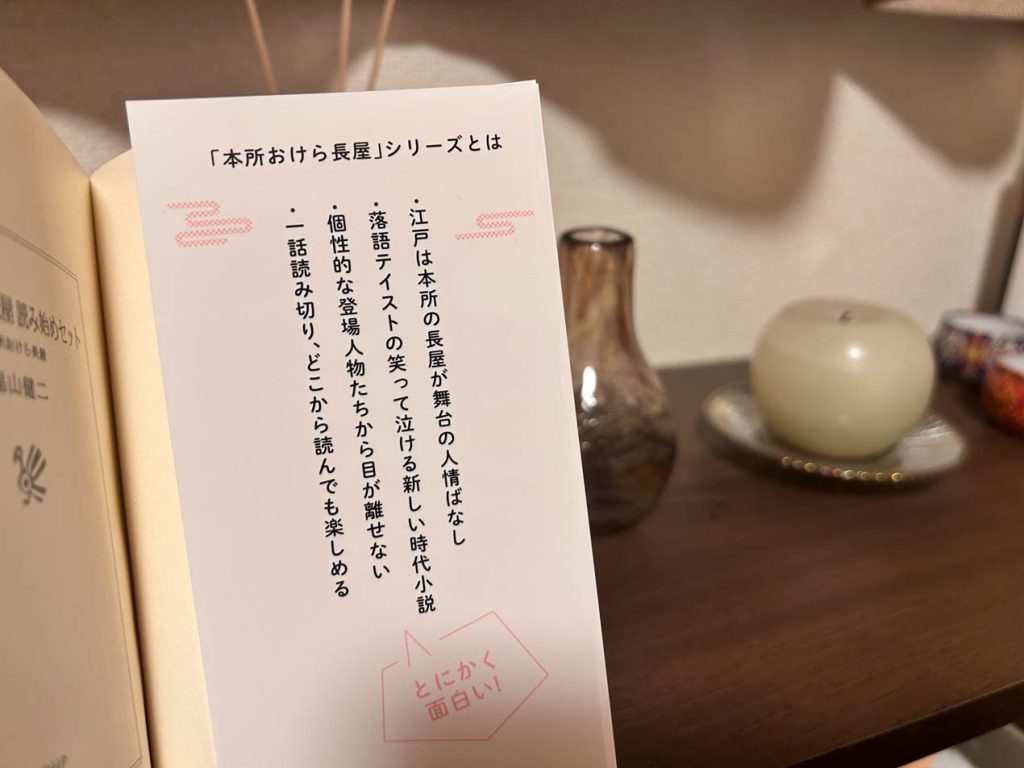 「本所おけら長屋」シリーズとは
・江戸は本所の長屋が舞台の人情ばなし
・落語テイストの笑って泣ける新しい時代小説
・個性的な登場人物たちから目が離せない
・一話読み切り、どこから読んでも楽しめる
とにかく
面白い!
屋 読み始めセット
おけら長屋
山健二